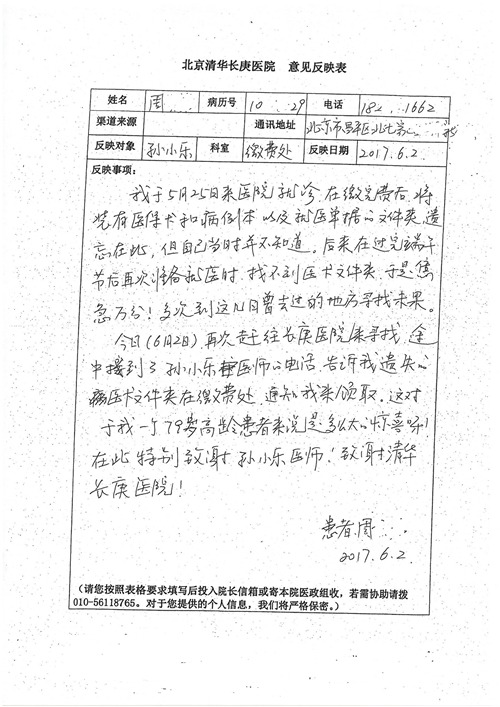 北京清华长庚医院 意见反映表
姓名 周 病历号 10 29 电话 182 1662
渠道来源 通讯地址 北京市昌平区北七家
反映对象 孙小乐 科室 缴费处 反映日期 2017.6.2
反映事项:
我于5月25日来医院就诊,在缴完费后,将
装有医保本和病例本以及就医单据的文件夹,遗
忘在此,但自己当时并不知道。后来在过完端午
节后再次准备就医时,找不到医本文件夹,于是焦
急万分!多次到这几日曾去过的地方寻找未果。
今日(6月2日)再次赶往长庚医院来寻找,途
中接到了孙小乐医师的电话,告诉我遗失的
医本文件夹在缴费处,通知我来领取。这对
于我一个79岁高龄患者来说是多么大的惊喜啊!
在此特别致谢孙小乐医师!致谢清华
长庚医院!
患者:周
2017.6.2
(请您按照表格要求填写后投入院长信箱或寄本院医政组收,若需协助请拨
010-56118765。对于您提供的个人信息,我们将严格保密。)